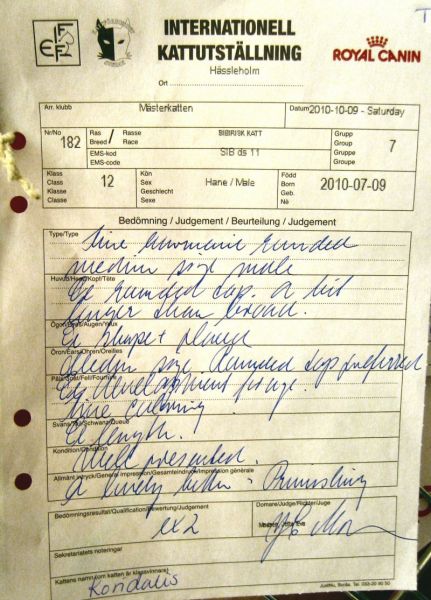 T
FIFe
INTERNATIONELL
KATTUTSTÄLLNING
ROYAL CANIN
Hässleholm
Ort
Arr. klubb Mästerkatten Datum 2010-10-09 - Saturday
Nr/No 182 Ras / Rasse SIBIRISK KATT Grupp 7
Breed / Race Group
EMS-kod SIB ds 11 Gruppe
EMS-code Groupe
Klass 12 Kön Hane / Male Född 2010-07-09
Class Sex Born
Klasse Geschlecht Geb.
Classe Sexe Né
Bedömning / Judgement / Beurteilung / Judgement
Type/Type
fine rounded
medium size male
Huvud/Head/Kopf/Tête
Ex rounded top. a bit
longer than broad.
Ögon/Eyes/Augen/Yeux
Ex shape + placing
Öron/Ears/Ohren/Oreilles
Medium size. Rounded tops preferred
Päls/Coat/Fell/Fourrure
Ex development for age.
fine colouring
Svans/Tail/Schwanz/Queue
Ex length.
Kondition/Condition
Well presented.
Allmänt intryck/General impression/Gesamteindruck/Impression générale
Ex lovely kitten - Promising
Bedömningsresultat/Qualification/Bewertung/Judgement
ex 2
Domare/Judge/Richter/Juge
Sekretariatets noteringar
Kattens namn (om katten är klassvinnare)
Kondalis